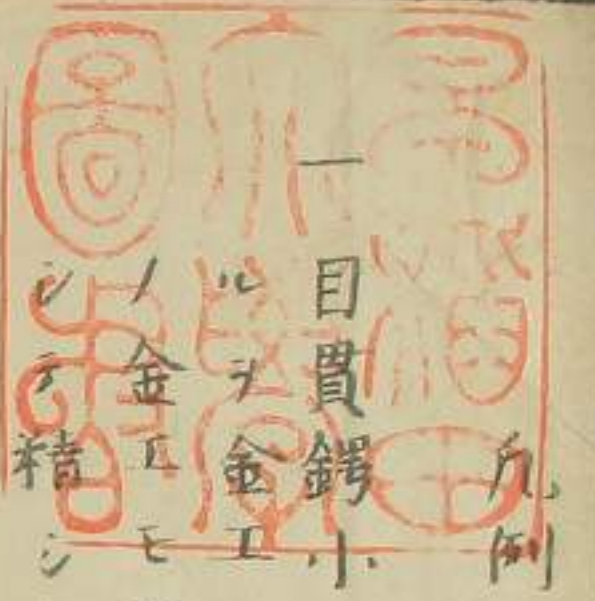 凡例
一目貫鍔小
ルヲ金工
ノ金工モ
シテ精シ